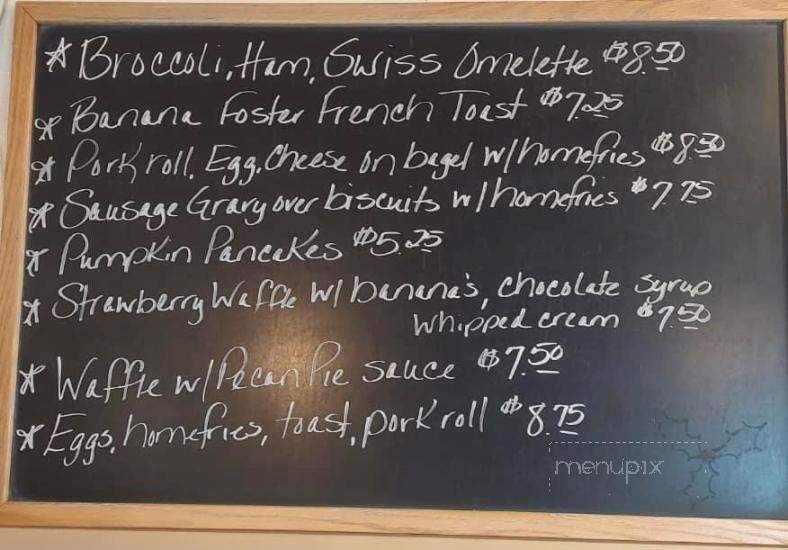 * Broccoli, Ham, Swiss Omelette $8.50
* Banana Foster French Toast $7.25
* Pork roll, Egg, Cheese on bagel w/homefries $8.50
* Sausage Gravy over biscuits w/homefries $7.75
* Pumpkin Pancakes $5.25
* Strawberry Waffle w/banana's, chocolate syrup
whipped cream $7.50
* Waffle w/Pecan Pie sauce $7.50
* Eggs, homefries, toast, pork roll $8.75
menupix